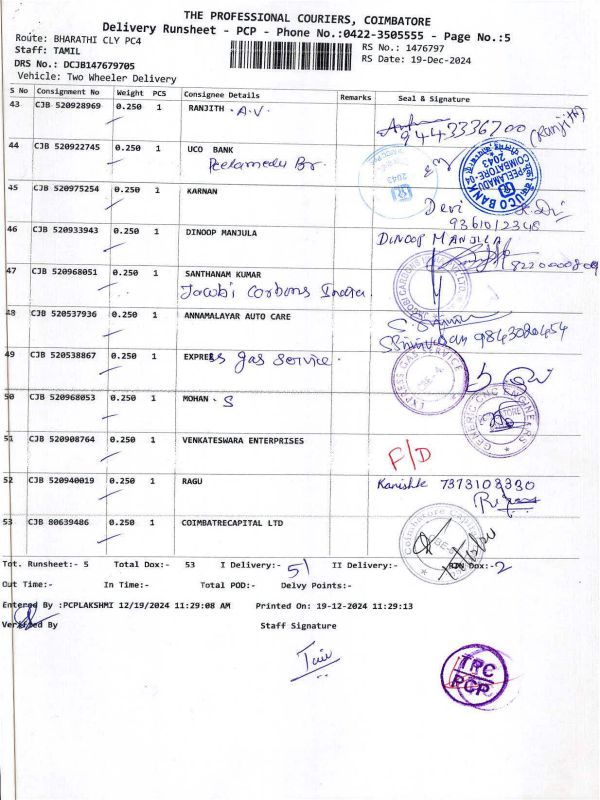 THE PROFESSIONAL COURIERS, COIMBATORE
Delivery Runsheet - PCP - Phone No.:0422-3505555 - Page No.:5
Route: BHARATHI CLY PC4
RS No.: 1476797
Staff: TAMIL
RS Date: 19-Dec-2024
DRS No.: DCJB147679705
Vehicle: Two Wheeler Delivery
S No Consignment No Weight PCS Consignee Details Remarks Seal & Signature
43 CJB 520928969 0.250 1 RANJITH . A.V.
9443336700 (Ranjith)
44 CJB 520922745 0.250 1 UCO BANK
Peelamedu Br.
UCO BANK PEELAMEDU COIMBATORE-04 2043
45 CJB 520975254 0.250 1 KARNAN
Devi
9361012348
46 CJB 520933943 0.250 1 DINOOP MANJULA
DINOOP MANJULA
8220000809
47 CJB 520968051 0.250 1 SANTHANAM KUMAR
Jacobi Carbons India.
48 CJB 520537936 0.250 1 ANNAMALAYAR AUTO CARE
Srinivasan 9843080454
49 CJB 520538867 0.250 1 EXPRESS Gas Service.
EXPRESS GAS SERVICE
50 CJB 520968053 0.250 1 MOHAN . S
GENERIC CNC ENGINEERS
51 CJB 520908764 0.250 1 VENKATESWARA ENTERPRISES
F/D
52 CJB 520940019 0.250 1 RAGU
Kanishk 7373103330
53 CJB 80639486 0.250 1 COIMBATRECAPITAL LTD
Coimbatore Capital
Tot. Runsheet:- 5 Total Dox:- 53 I Delivery:- 51 II Delivery:- RTN Dox:- 2
Out Time:- In Time:- Total POD:- Delvy Points:-
Entered By :PCPLAKSHMI 12/19/2024 11:29:08 AM Printed On: 19-12-2024 11:29:13
Verified By Staff Signature
TRC
PCP